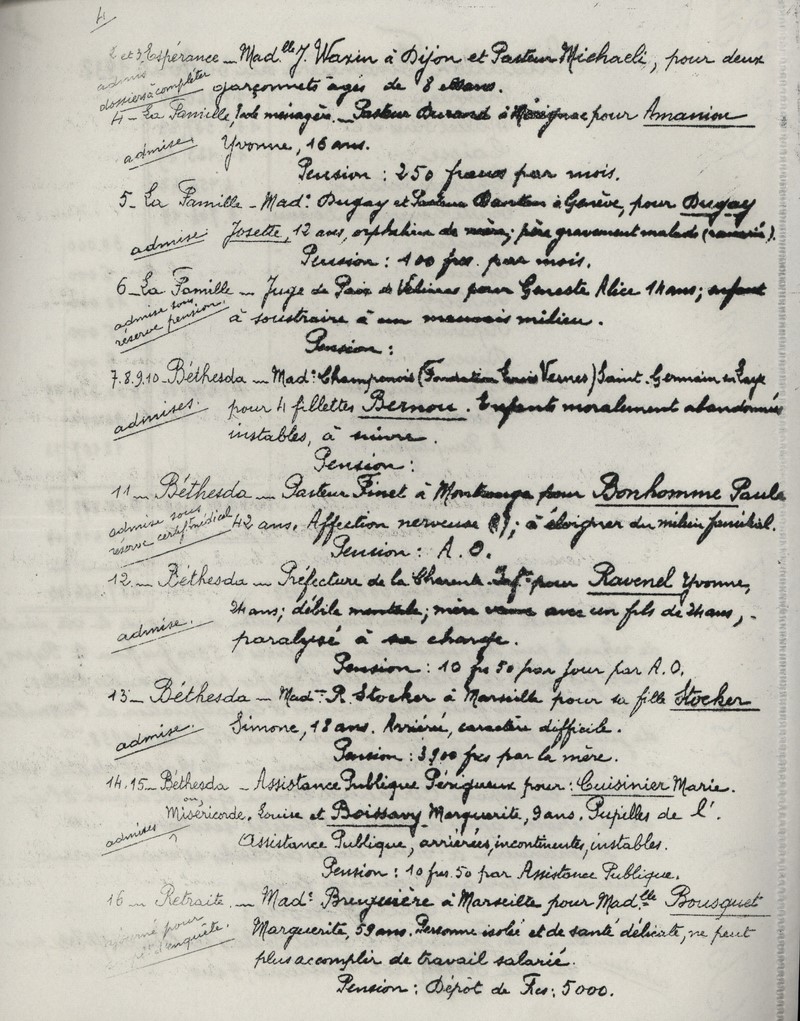 4
2 et 3. Espérance _ Mad.lle J. Waxin à Dijon et Pasteur Michaeli, pour deux
admis
dossiers à compléter
garçonnets âgés de 8
4 - La Famille, Ecole ménagère _ Pasteur Durand à Mérignac pour Amaniou
admise.
Yvonne, 16 ans.
Pension : 250 francs par mois.
5 - La Famille - Mad.e Dugay et Pasteur à Genève, pour Dugay
admise
Josette, 12 ans, orpheline de mère ; père gravement malade ( ).
Pension : 100 frcs. par mois.
6 _ La Famille - Juge de Paix de Vélines pour Geneste Alice 14 ans ; enfant
admise sous
réserve pension.
à soustraire à un mauvais milieu.
Pension :
7.8.9.10 - Béthesda _ Mad.e Champenois (Fondation Louis Vernes) Saint-Germain en Laye
admises.
pour 4 fillettes Bernou. Enfants moralement abandonnées
instables, à suivre.
Pension :
11 _ Béthesda _ Pasteur Finet à pour Bonhomme Paule
admise sous
réserve certif. médical
42 ans. Affection nerveuse (?) ; à éloigner du milieu familial.
Pension : A.O.
12 _ Béthesda _ Préfecture de la Charente Infre pour Ravenel Yvonne,
24 ans ; débile mentale ; mère veuve avec un fils de 24 ans,
admise.
paralysé à sa charge.
Pension : 10 frs 50 par jour par A.O.
13 - Béthesda - Mad.me R. Stocker à Marseille pour sa fille Stocker
admise.
Simone, 18 ans. Arriérée, caractère difficile.
Pension : 3900 frcs par la mère.
14.15 - Béthesda - Assistance Publique Périgueux pour : Cuisinier Marie.
ou
Miséricorde. Louise et Boissavy Marguerite, 9 ans. Pupilles de l'
admises
Assistance Publique, arriérées, incontinentes, instables.
Pension : 10 frcs. 50 par Assistance Publique.
16 _ Retraite. _ Mad.e Bruguière à Marseille pour Mad.lle Bousquet
pour
enquête.
Marguerite, 59 ans. Personne isolée et de santé délicate, ne peut
plus accomplir de travail salarié.
Pension : Dépôt de Frcs : 5000.